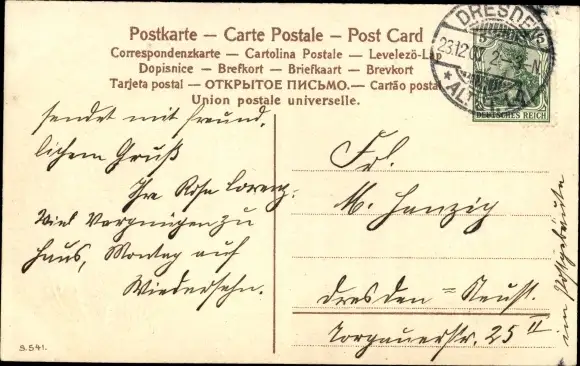 Postkarte — Carte Postale — Post Card
Correspondenzkarte — Cartolina Postale — Levelezö-Lap
Dopisnice — Brefkort — Briefkaart — Brevkort
Tarjeta postal — ОТКРЫТОЕ ПИСЬМО. — Cartão postal
Union postale universelle.
DRESDEN
23.12.0
2-3 N
* ALTST.
DEUTSCHES REICH
sendet mit freund,
lichem Gruß
Ihre Rosa Lorenz.
Viel Vergnügen zu
Haus, Montag auf
Wiedersehn.
Frl.
M. Hanzig
Dresden = Neust.
Torgauerstr. 25 II
im Postgebäude
S. 541.